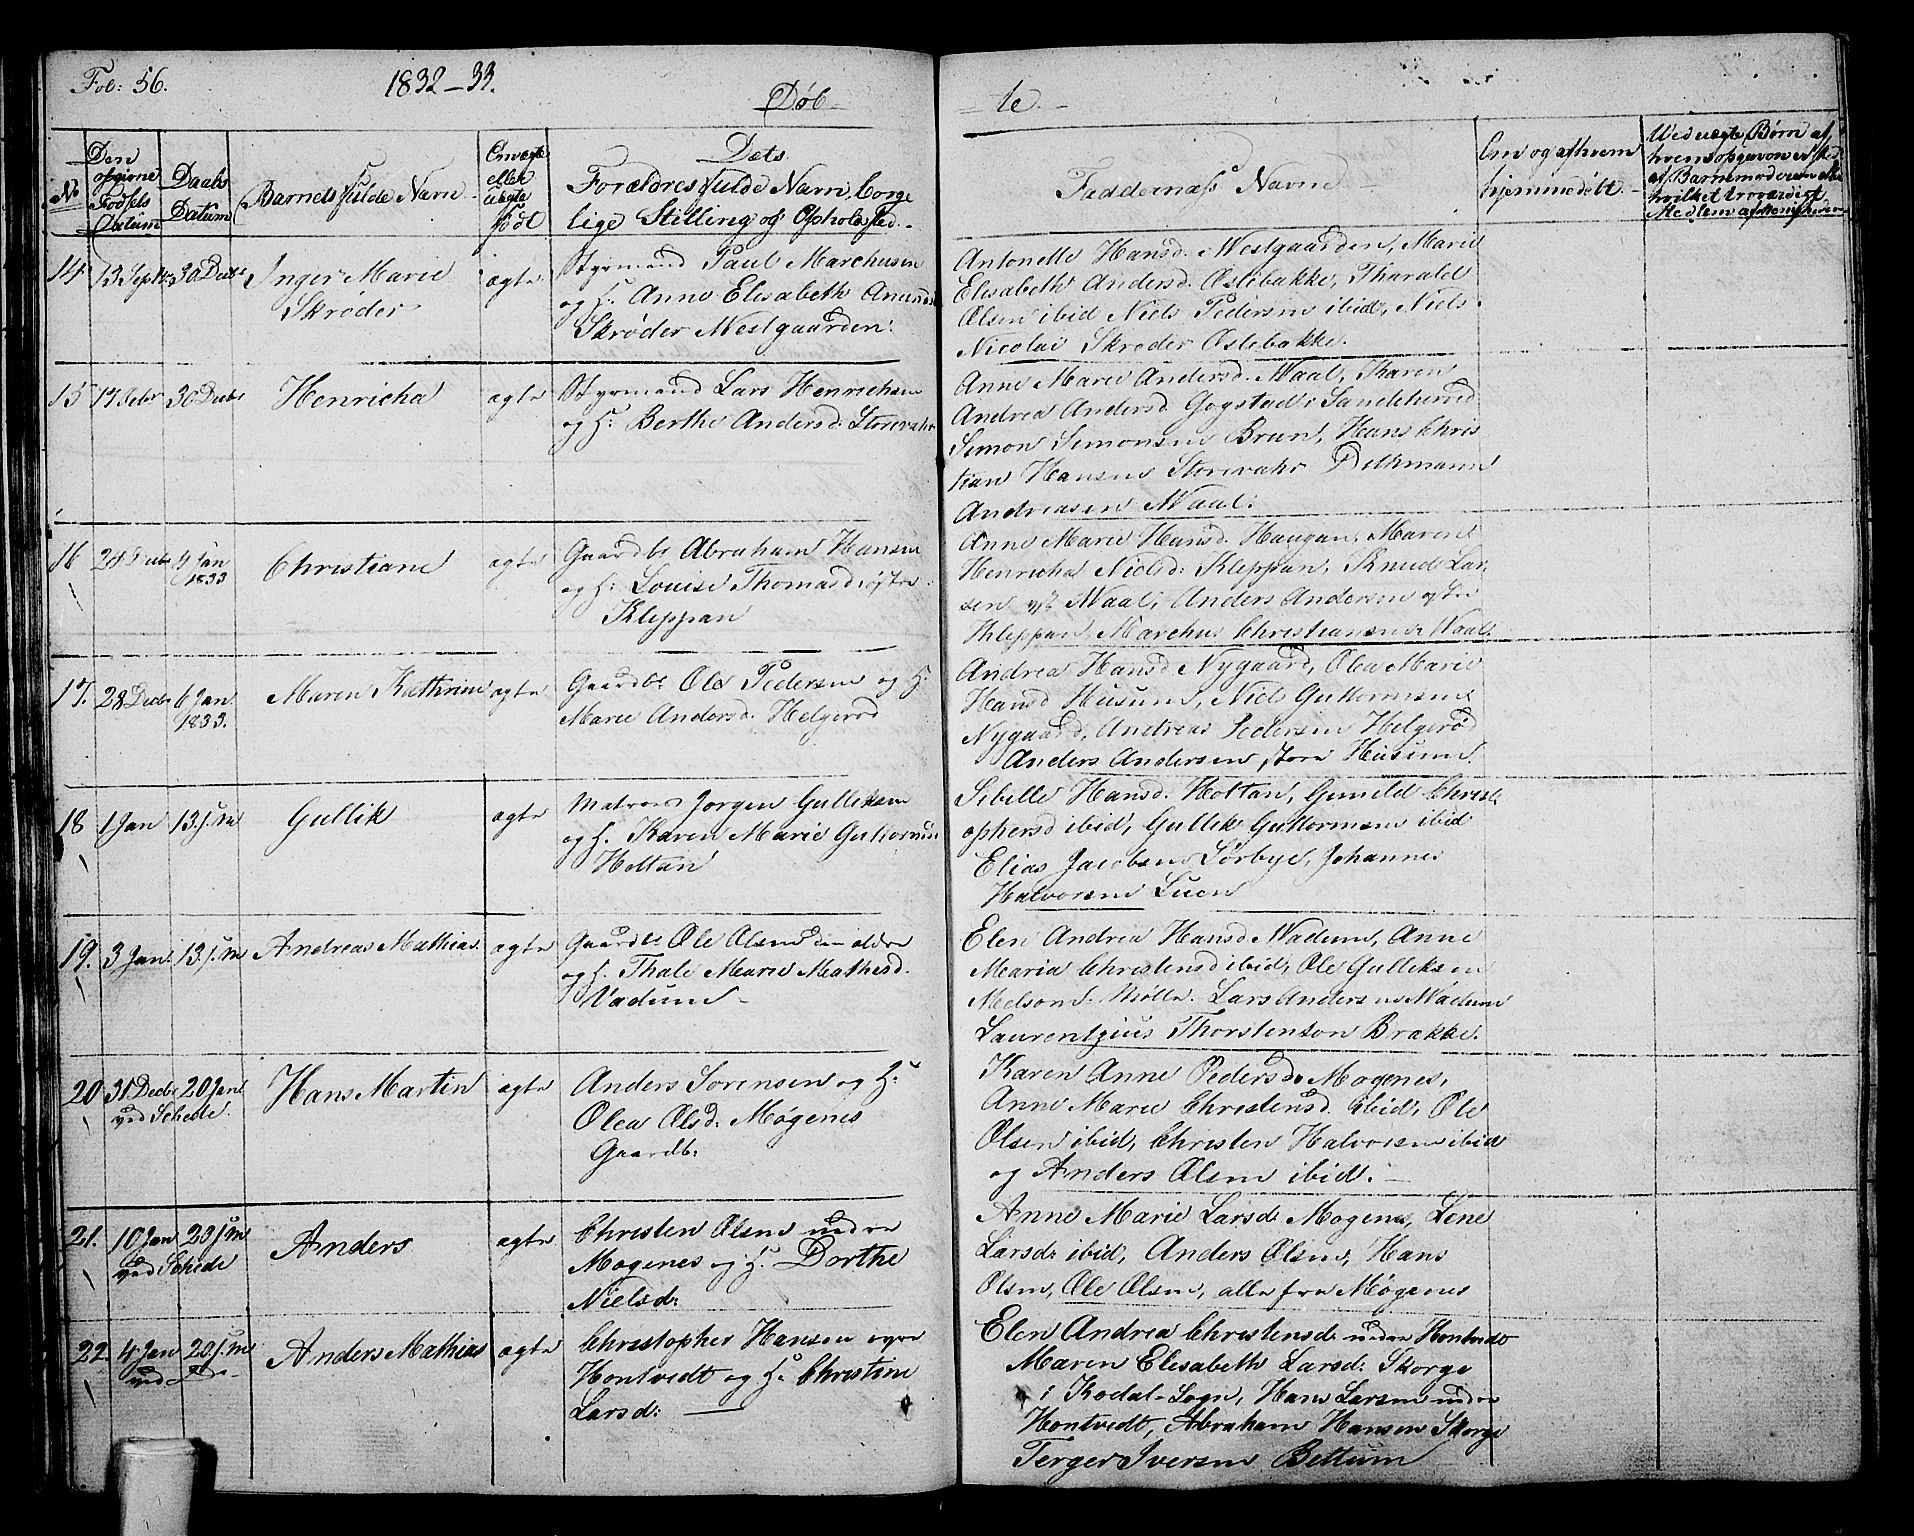 Fol: 56. 1832-33. Døb-
te.-
No
Den opgivne Fødsels Datum
Daabs Datum
Barnets fulde Navn
Om ægte eller uægte født
Dets
Forældres fulde Navn, borge
lige Stilling og Opholdsted.
Faddernes Navne
Om og af hvem
hjemmedøbt.
Ved uægte Børn af
hvem opgaven er sked
af Barnemoderen eller
hvilket troværdigt
Medlem af Menigheden
14. 13 Septbr 30 Decbr Inger Marie
Skrøder
ægte
Styrmand Paul Marchusen
og H: Anne Elisabeth Amunds
Skrøder Westgaarden.
Antonette Hansd. Westgaarden, Marie
Elisabeth Andersd. Østebakke, Tharald
Olsen ibid Niels Pedersen ibid, Niels
Nicolai Skrøder Østebakke.
15 30 Decbr Henricha ægte
Styrmand Lars Henrichsen
og H: Berthe Andersd: Storevahr
Anne Marie Andersd. Waal, Tharen
Andrea Andersd Gogstad i Sandeherred
Simon Simonsen Bruun, Hans Chris
tian Hansen Storevahr
Andreasen Waal.
16 28 Decbr 4 Jan
1833
Christiane ægte
Gaardbr Abraham Hansen
og H: Louise Thomasd østre
Kleppan
Anne Marie Hansd. Haugan, Maren
Henricha Nielsd: Kleppan, Knud Lar
sen Waal, Anders Andersen østre
Kleppan, Marchus Christiansen Waal.
17. 28 Decbr 6 Jan
1833.
Maren Kathrine ægte
Gaardbr Ole Pedersen og H:
Marie Andersd. Helgerød
Andrea Hansd Nygaard, Olea Marie
Hansd Husum, Niels Guttormsen
Nygaard, Andreas Pedersen Helgerød
Anders Andersen store Husum.
18 1 Jan 13. s.m Gullik ægte
Matros Jørgen Gulliksen
og H. Karen Marie Guttormsd
Holtan
Sibille Hansd. Holtan, Gunild Christ
ophersd ibid, Gullik Guttormsen ibid
Elias Jacobsen Sørbye, Johannes
Halvorsen Luen
19. 3 Jan. 13. s.m Andreas Mathias. ægte
Gaardbr Ole Olsen den ældre
og H. Thale Marie Mathesd.
Vadum-
Elen Andrea Hansd. Wadum, Anne
Maria Christensd ibid, Ole Gulliksen
Melsom Mølle. Lars Andersen Wadum
Laurentzius Thorstenson Brække.
20 31 Decbr 20 Jan
ved Schede.
Hans Martin ægte
Anders Sørensen og H:
Olea Olsd: Møgenes
Gaardb:
Karen Anne Pedersd. Mogenes,
Anne Marie Christensd. ibid, Ole
Olsen ibid, Christen Halvorsen ibid
og Anders Olsen ibid.-
21. 10 Jan 20 s.m
ved Schede
Anders ægte
Christen Olsen nedre
Mogenes og H. Dorthe
Nielsd:
Anne Marie Larsd Mogenes, Lene
Larsd: ibid, Anders Olsen, Hans
Olsen, Ole Olsen, alle fra Møgenes
22. 4 Jan 20. s.m
ved
Anders Mathias ægte
Christopher Hansen øvre
Hontvedt og H: Christine
Larsd:
Elen Andrea Christensd. nedre Hontvedt
Maren Elisabeth Larsd: Skorge
i Kodal-Sogn, Hans Larsen nedre
Hontvedt, Abraham Hansen Skorge
Terger Iversen Bettum